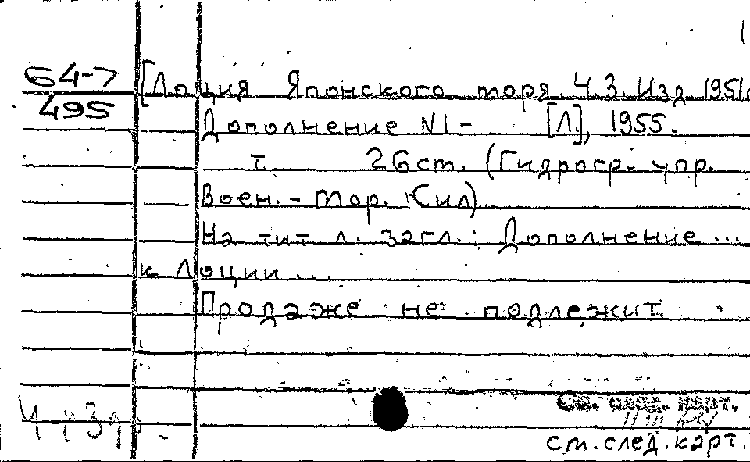 64-7
495
[Лоция Японского моря. Ч.3. Изд. 1951г.
Дополнение N1- [Л.], 1955.
т. 26 ст. (Гидрогр. упр.
Воен.-Мор. Сил)
На тит. л. загл.: Дополнение...
к Лоции...
Продаже не подлежит
см. след. карт.